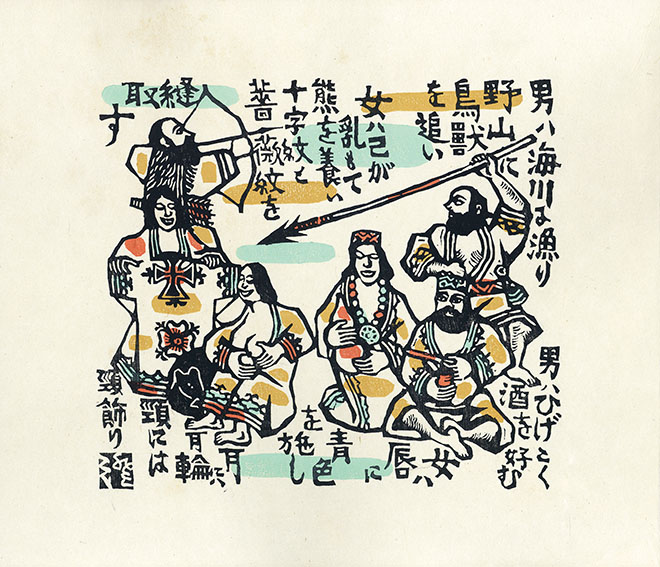 男ハ海川に漁り
野山に
鳥獸
を追い
女ハ己が
乳もて
熊を養い
十字紋と
薔薇紋を
縫取す
男ハひげこく
酒を好む
女ハ
唇に
青色
を施し
耳ニハ
耳輪
頸には
頸飾り